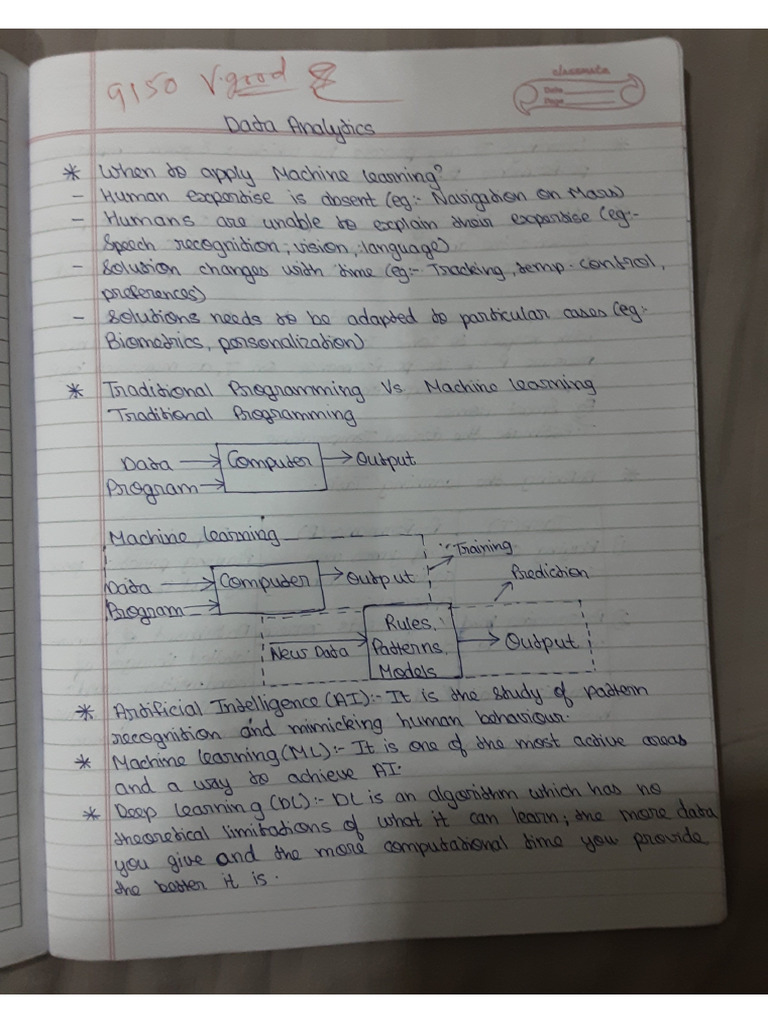 9150 V.good
classmate
Date
Page
Data Analytics
* When to apply Machine learning?
- Human expertise is absent (eg:- Navigation on Mars)
- Humans are unable to explain their expertise (eg:-
Speech recognition, vision, language)
- Solution changes with time (eg:- Tracking, temp. control,
preferences)
- Solutions needs to be adapted to particular cases (eg:-
Biometrics, personalization)
* Traditional Programming Vs Machine learning
Traditional Programming
Data → Computer → Output
Program →
Machine learning
Training
Data → Computer → Output
Prediction
Program →
Rules,
New Data → Patterns, → Output
Models
* Artificial Intelligence (AI):- It is the study of pattern
recognition and mimicking human behaviour.
* Machine learning (ML):- It is one of the most active areas
and a way to achieve AI.
* Deep Learning (DL):- DL is an algorithm which has no
theoretical limitations of what it can learn; the more data
you give and the more computational time you provide
the better it is.